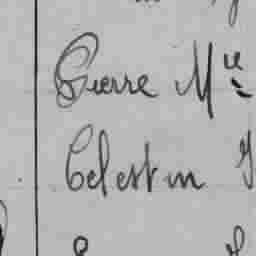 Pierre Mie
Celestin